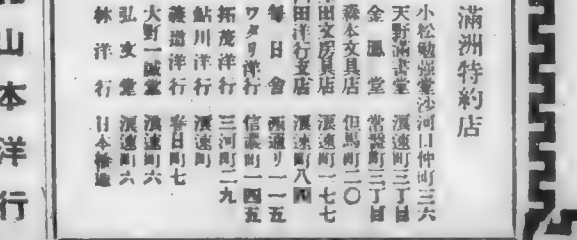 滿洲特約店
小松勉强堂 沙河口仲町三六
天野滿書堂 浪速町三丁目
金鳳堂 常盤町三丁目
森本文具店 但馬町二〇
田文房具店 浪速町一七七
田洋行支店 浪速町八
每日會 西通リ一一五
ワタリ洋行 信濃町一四五
拓茂洋行 三河町二九
鮎川洋行 浪速町
義道洋行 春日町七
大野一誠堂 浪速町六
弘文堂 浪速町六
林洋行 日本橋
山本洋行